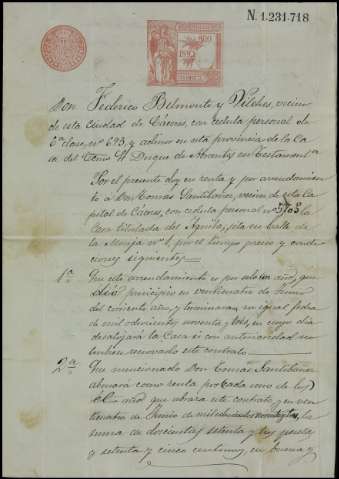 N. 1.231.718
Don Federico Belmonte y Vilches, vecino
de esta Ciudad de Cáceres, con cedula personal de
6ª clase, nº 623, y admor en esta provincia de la Ca
sa del Excmo Sr Duque de Abrantes en Testamentª
Por el presente doy en renta y por arrendamien
to a Don Tomas Santillana, vecino de esta Ca
pital de Cáceres, con cedula personal nº 3703 la
Casa titulada del Aguila, sita en calle de
la Monja nº 1, por el tiempo precio y condi
ciones siguientes
1ª Que este arrendamiento es por solo un año, que
dió principio en veinticuatro de Junio
del corriente año, y terminara en igual fecha
de mil ochocientos noventa y tres, en cuyo dia
desalojará la Casa si con anterioridad no
se hubiera renovado este contrato.
2ª Que mencionado Don Tomas Santillana
abonará como renta por cada uno de los
año que abraza este contrato, y en vein
ticuatro de Junio de mil la
suma de doscientas setenta y tres pesetas
y setenta y cinco centimos en buena y